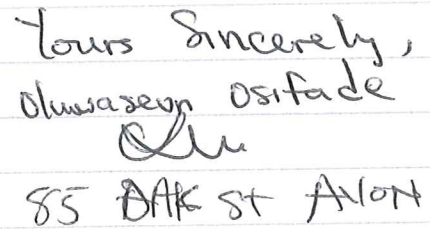 Yours Sincerely,
Oluwaseun Osifade
85 OAK St AVON